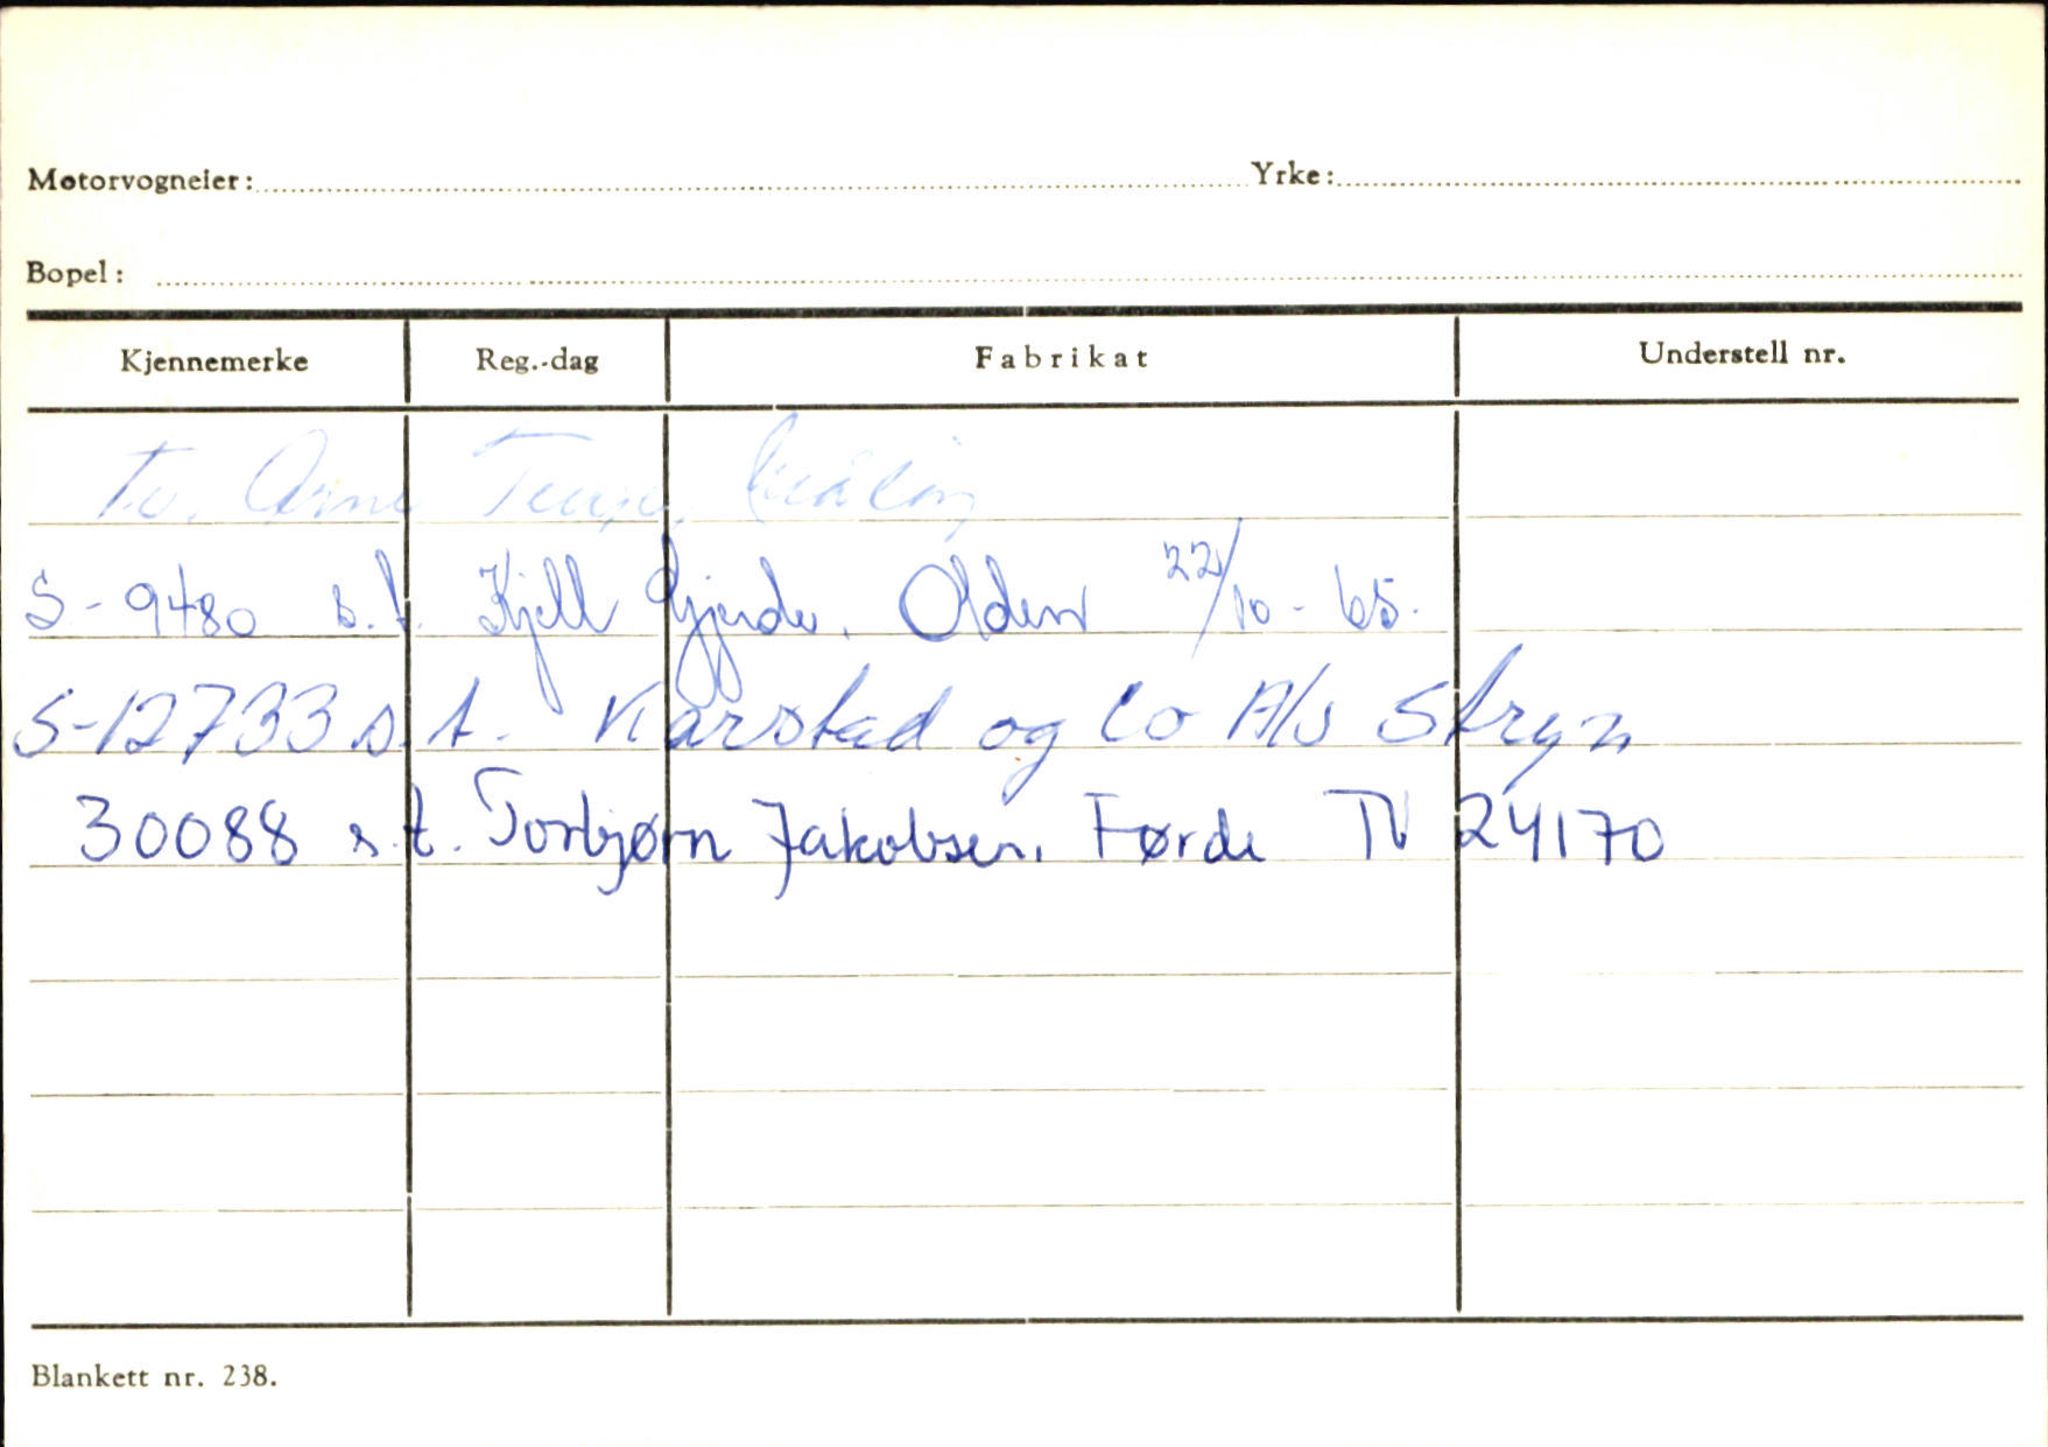 Motorvogneier: Yrke:
Bopel:
Kjennemerke Reg.-dag Fabrikat Understell nr.
Arne
S-9480 s.t. Kjell Gjerde. Olden 22/10-65.
S-12733 s.t. Karstad og Co A/S Stryn
30088 s.t. Torbjørn Jakobsen. Førde TV 24170
Blankett nr. 238.